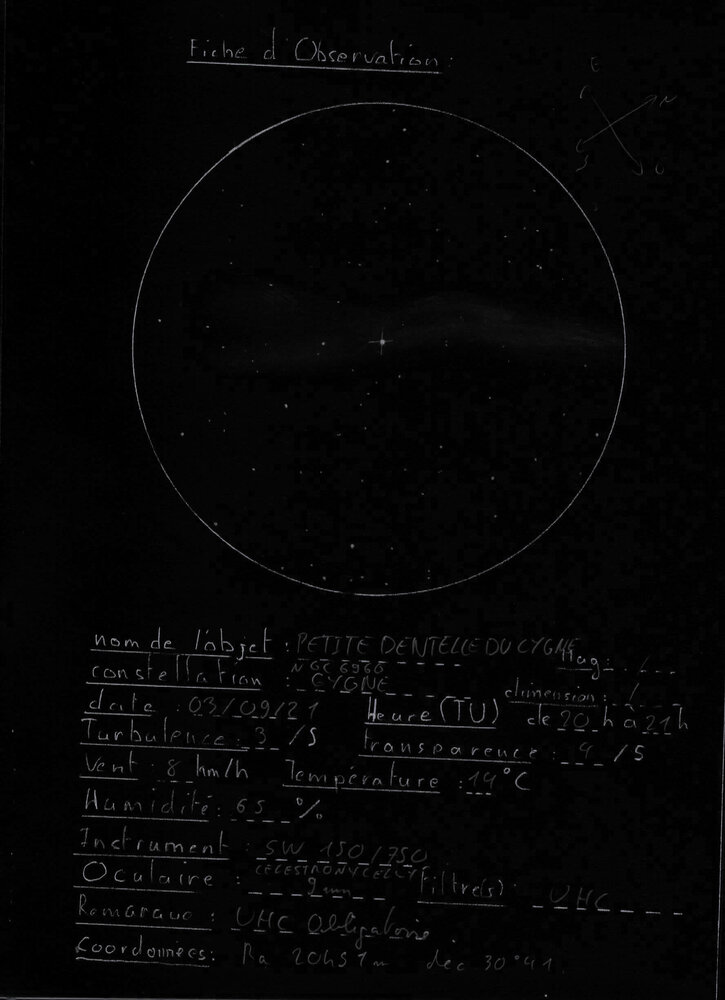 Fiche d'Observation:
E
N
S
O
nom de l'objet : PETITE DENTELLE DU CYGNE
Mag: /
NGC 6960
constellation : CYGNE
dimension: /
date : 03/09/21 Heure (TU) de 20 h à 21 h
Turbulence: 3 /5 transparence : 4 /5
Vent : 8 km/h Température : 14 °C
Humidité : 65 %
Instrument : SW 150/750
Oculaire : CELESTRON 9mm Filtre(s): UHC
Remarque : UHC Obligatoire.
Coordonnées: Ra 20h51m dec 30°41.